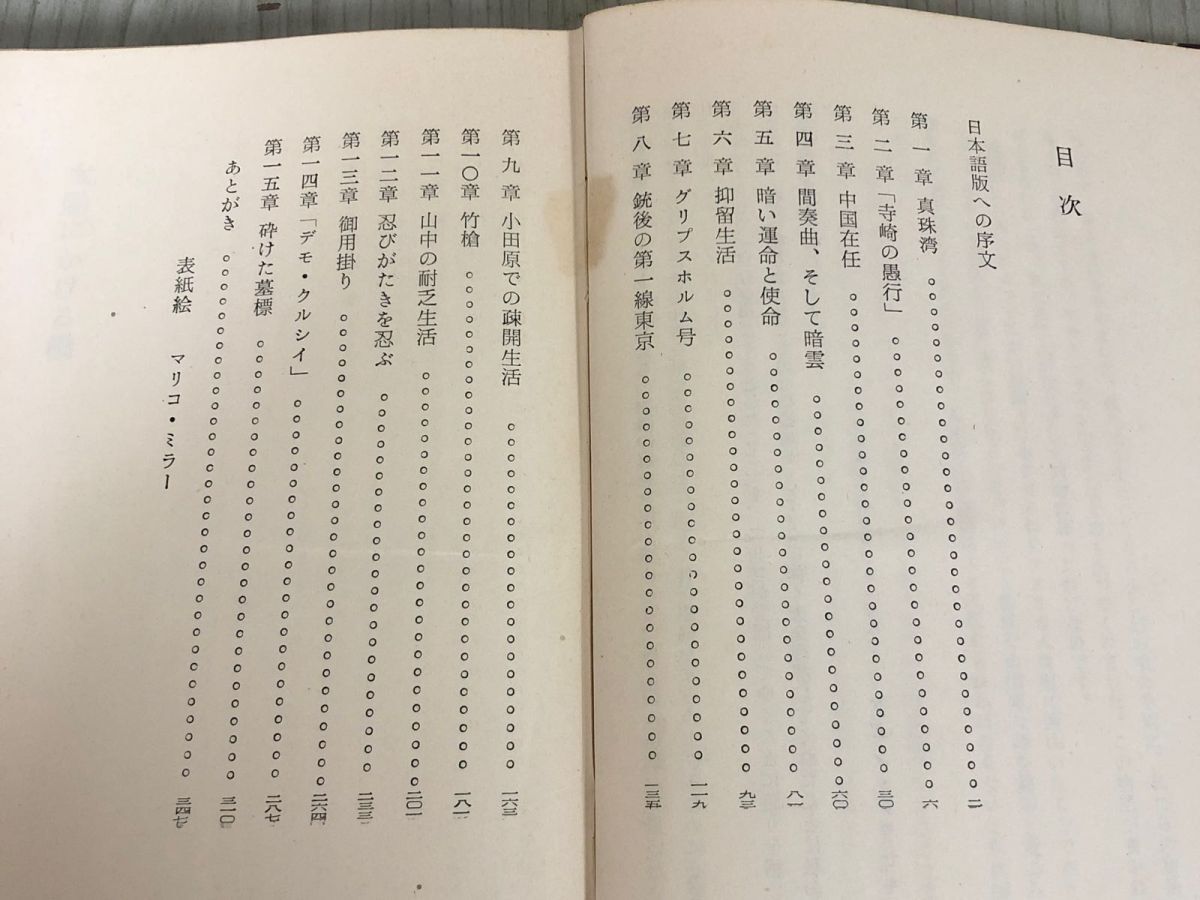 目次
日本語版への序文
第一章 真珠湾 二
第二章 「寺崎の愚行」 六
第三章 中国在任 三〇
第四章 間奏曲、そして暗雲 六〇
第五章 暗い運命と使命 八一
第六章 抑留生活 九三
第七章 グリプスホルム号 一一九
第八章 銃後の第一線東京 一三五
第九章 小田原での疎開生活 一六三
第一〇章 竹槍 一八一
第一一章 山中の耐乏生活 二〇一
第一二章 忍びがたきを忍ぶ 二三三
第一三章 御用掛り 二六四
第一四章 「デモ・クルシイ」 二八七
第一五章 砕けた墓標 三一〇
あとがき 三四七
表紙絵 マリコ・ミラー